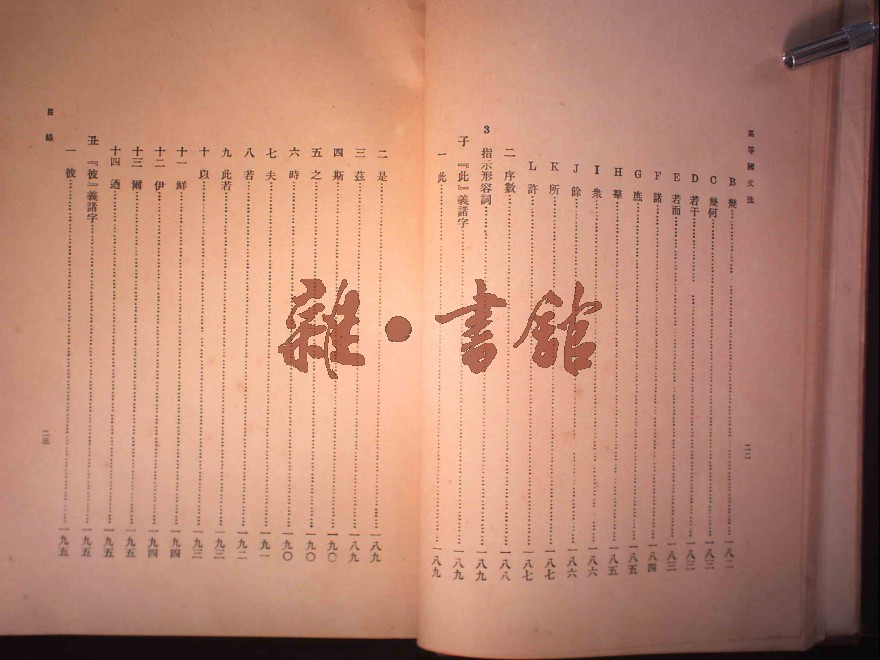 高等國文法
B 幾……一八二
C 幾何……一八二
D 若干……一八三
E 若而……一八三
F 諸……一八四
G 庶……一八五
H 羣……一八五
I 衆……一八六
J 餘……一八六
K 所……一八七
L 許……一八七
二 序數……一八八
3 指示形容詞……一八九
子 『此』義諸字……一八九
一 此……一八九
二二
目錄
二 是……一八九
三 茲……一八九
四 斯……一九〇
五 之……一九〇
六 時……一九〇
七 夫……一九一
八 若……一九二
九 此若……一九三
十 以……一九三
十一 鮮……一九四
十二 伊……一九四
十三 爾……一九五
十四 迺……一九五
丑 『彼』義諸字……一九五
一 彼……一九五
二三
雜·書館